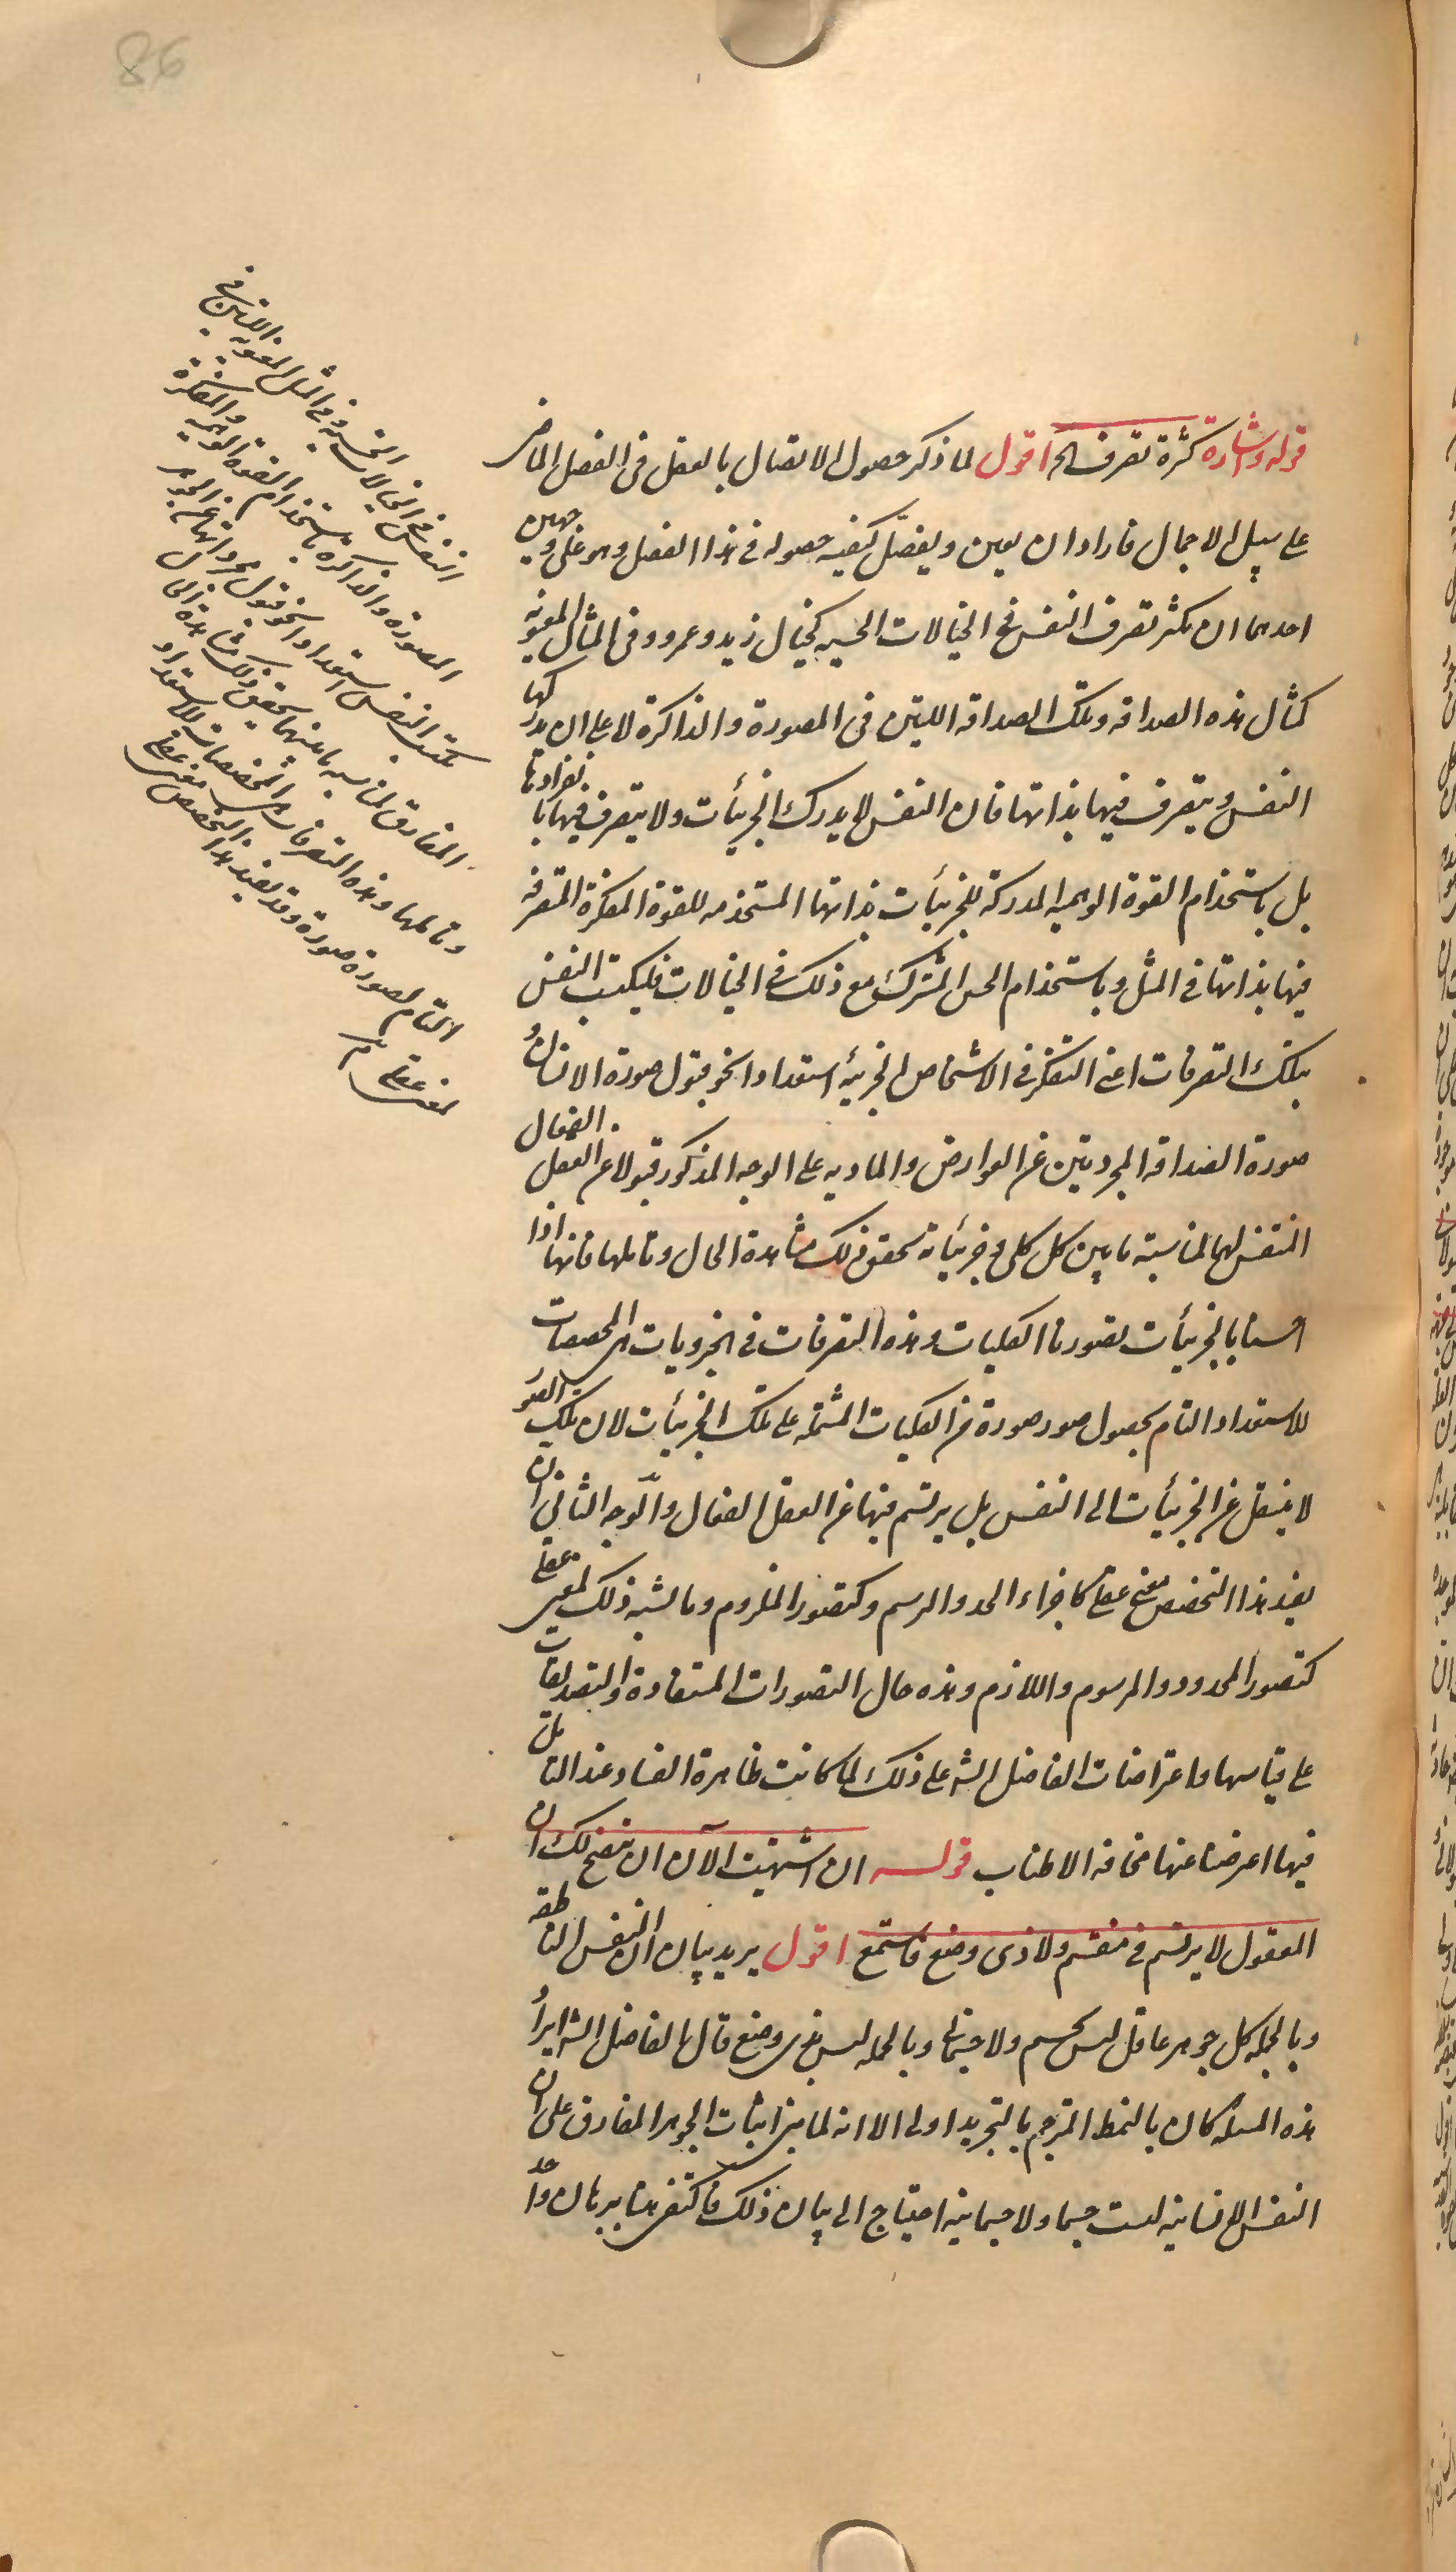 86
قوله و اشارة كثرة تصرف الخ اقول لما ذكر حصول الاتصال بالعقل فى الفصل الماضى
على سبيل الاجمال فاراد ان يعين و يفصّل كيفية حصوله فى هذا الفصل وهو على وجهين
احدهما ان يكثر تصرف النفس فى الخيالات الحسيه كخيال زيد و عمرو و فى المثال المعنويه
كمثال هذه الصداقه و تلك الصداقه اللتين فى المصورة و الذاكرة لا على ان يدركها
النفس و يتصرف فيها بذاتها فان النفس لا يدرك الجزئيات و لا يتصرف فيها بانفرادها
بل باستخدام القوة الوهميه المدركة للجزئيات بذاتها المستخدمه للقوة المفكرة المتصرفه
فيها بذاتها فى المثل و باستخدام الحس المشترك مع ذلك فى الخيالات فليكتسب النفس
بتلك التصرفات اعنى التفكر فى الاشخاص الجزئية استعدادا نحو قبول صورة الانسان و
صورة الصداقه المجردتين عن العوارض و الماديه على الوجه المذكور قبولا عن العقل الفعال
المنتقش لهما لمناسبة ما بين كل كلى و جزئياته تحقق ذلك مشاهدة الحال و تاملها فانها اذا
احسنا بالجزئيات تصورنا الكليات و هذه التصرفات فى الجزويات هى المخصصات
للاستعداد التام بحصول صور صورة من الكليات المشتمله على تلك الجزئيات لان تلك الصور
لا ينتقل عن الجزئيات الى النفس بل يرتسم فيها عن العقل الفعال و الّوجه الثانى ان
يفيد هذا التخصص معنى عقلى كاجزاء الحد و الرسم و كتصور الملزوم و ما يشبه ذلك لمعنى عقلى
كتصور المحدود و المرسوم و اللازم و هذه حال التصورات المستفادة و التصديقات
على قياسها و اعتراضات الفاضل الشه على ذلك لما كانت ظاهرة الفساد عند التامل
فيها اعرضنا عنها مخافه الاطناب قولــه ان اشتهيت الآن ان يتضح لك ان
المعقول لا يرتسم فى منقسم و لا ذى وضع فاستمع اقول يريد بيان ان النفس الناطقه
و بالجمله كل جوهر عاقل ليس بجسم و لا جسمانى و بالجمله ليس بذى وضع قال الفاضل الشه ايراد
هذه المسئله كان بالنمط المترجم بالتجريد اولى الا انه لما بنى اثبات الجوهر المفارق على ان
النفس الانسانيه ليست جسما و لا جسمانيه احتياج الى بيان ذلك فاكتفى هنا ببرهان واحد
النفس فى الخيالات الحسيه و فى المثل المعنويه اللتين فى
المصورة و الذاكرة باستخدام القوة الوهميه و المفكرة
تكتسب النفس استعدادا نحو قبول مجرداتها عن الجوهر
المفارق لمناسبه ما بينهما تحقق ذلك مشاهدة الحال
و تاملها و هذه التصرفات هى المخصصات للاستعداد
التام لصورة صورة و قد يفيد هذا التخصص معنى عقلى
لمعنى عقلى